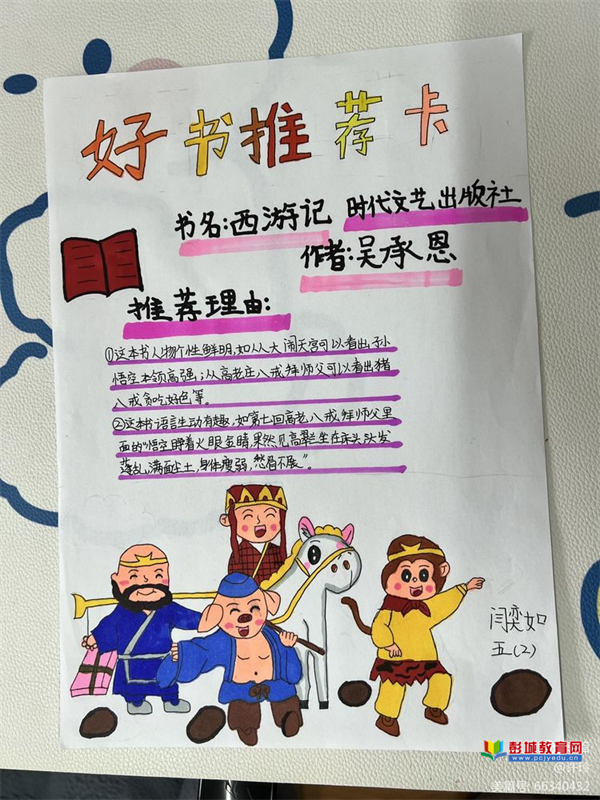 好书推荐卡
书名:西游记 时代文艺出版社
作者:吴承恩
推荐理由:
①这本书人物个性鲜明,如从大闹天宫可以看出孙
悟空本领高强;从高老庄八戒拜师父可以看出猪
八戒贪吃好色等。
②这本书语言生动有趣,如第七回高老八戒拜师父里
面的“悟空睁着火眼金睛果然见高翠兰坐在床头头发
蓬乱,满面尘土,身体瘦弱,愁眉不展”。
闫奕如
五(2)
彭城教育网
www.pcjyedu.cn
66340492